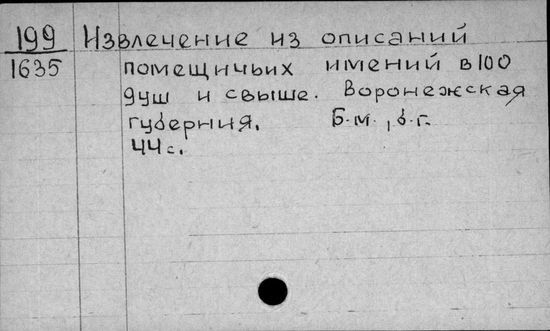 199 Извлечение из описаний
1635 помещичьих имений в 100
душ и свыше. Воронежская
губерния. Б.м., б.г.
44 с.